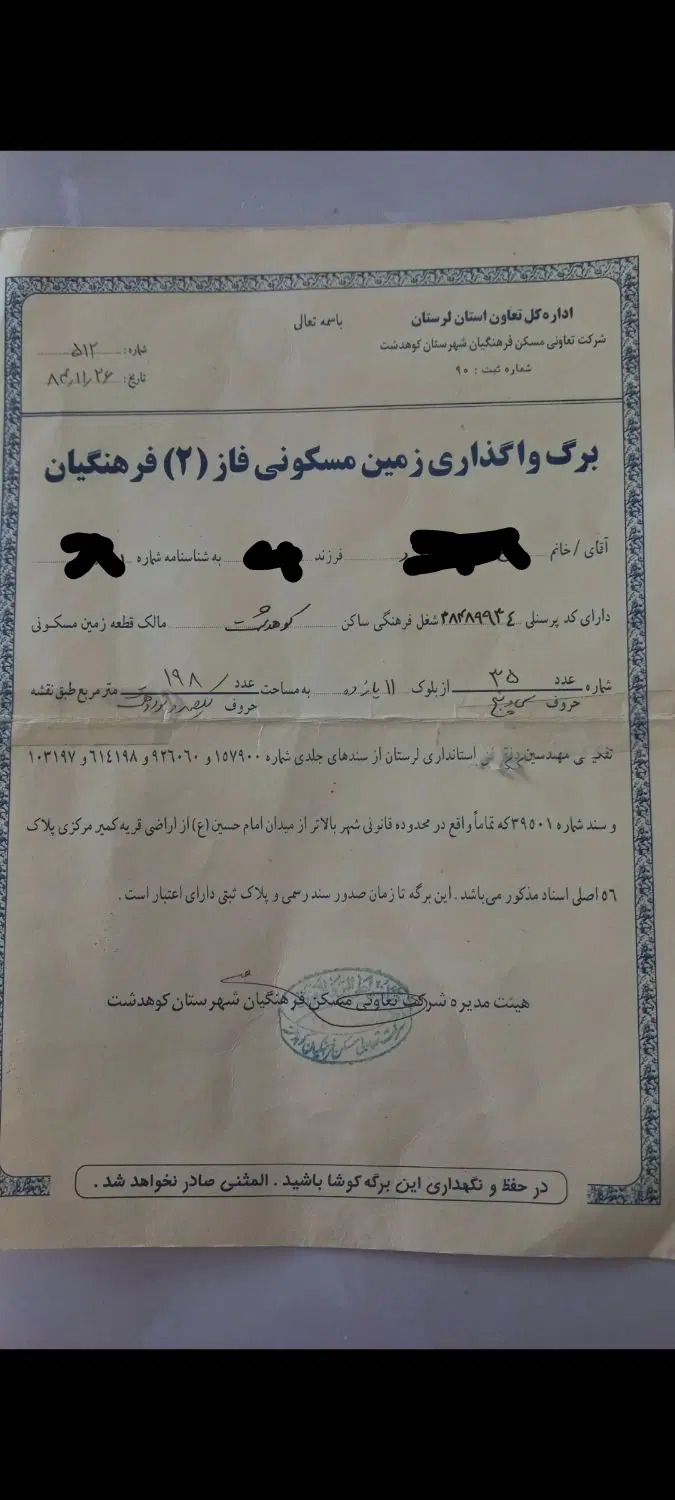 اداره کل تعاون استان لرستان
باسمه تعالی
شرکت تعاونی مسکن فرهنگیان شهرستان کوهدشت
شماره ثبت : ۹۰
شماره: ۵۱۲
تاریخ: ۸۴/۱۱/۲۶
برگ واگذاری زمین مسکونی فاز (۲) فرهنگیان
آقای / خانم فرزند به شناسنامه شماره
دارای کد پرسنلی ۳۸۴۸۹۹۳٤ شغل فرهنگی ساکن کوهدشت مالک قطعه زمین مسکونی
شماره عدد ۳۵ حروف سی و پنج از بلوک ۱۱ یازده به مساحت عدد ۱۹۸ حروف متر مربع طبق نقشه
تفکیکی مهندسین استانداری لرستان از سندهای جلدی شماره ۱۵۷۹۰۰ و ۹۲٦۰٦۰ و ٦۱٤۱۹۸ و ۱۰۳۱۹۷
و سند شماره ۳۹۵۰۱ که تماماً واقع در محدوده قانونی شهر بالاتر از میدان امام حسین (ع) از اراضی قریه کمیر مرکزی پلاک
۵٦ اصلی اسناد مذکور می‌باشد . این برگه تا زمان صدور سند رسمی و پلاک ثبتی دارای اعتبار است .
هیئت مدیره شرکت تعاونی مسکن فرهنگیان شهرستان کوهدشت
در حفظ و نگهداری این برگه کوشا باشید . المثنی صادر نخواهد شد .